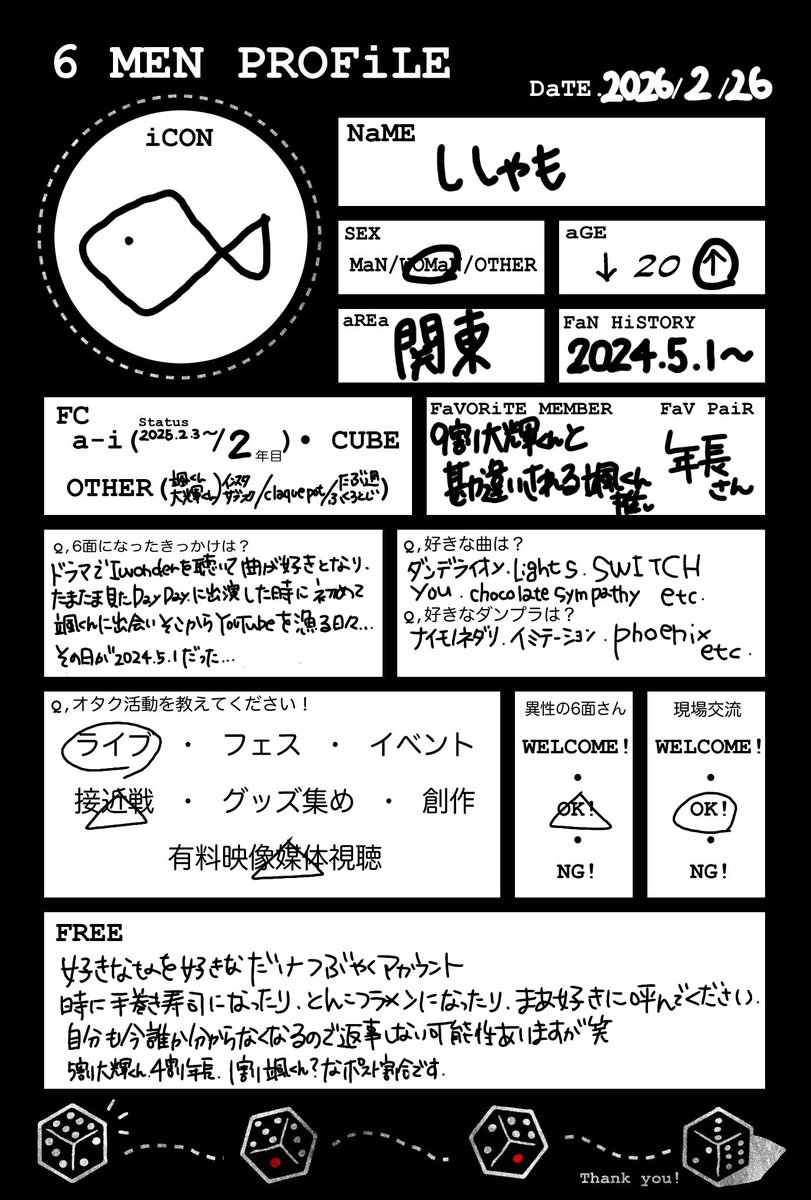 6 MEN PROFiLE
DaTE. 2026/2/26
iCON
NaME
ししゃも
SEX
MaN/WOMaN/OTHER
aGE
↓ 20 ↑
aREa
関東
FaN HiSTORY
2024.5.1〜
FC
a-i (Status 2025.2.3〜/2年目)・ CUBE
OTHER (颯くん 大輝くん インスタ サブスク/claquepot/たぶ通 ふくろとじ)
FaVORiTE MEMBER
9割大輝くんと
勘違いされる颯くん
推し
FaV PaiR
年長
さん
Q,6面になったきっかけは？
ドラマでI wonderを聴いて曲が好きとなり、
たまたま見たDayDay.に出演した時に初めて
颯くんに出会いそこからYouTubeを漁る日々...
その日が2024.5.1だった...
Q,好きな曲は？
ダンデライオン.Lights.SWITCH
You.chocolate sympathy etc.
Q,好きなダンプラは？
ナイモノネダリ.イミテーション.phoenix
etc.
Q,オタク活動を教えてください！
ライブ ・ フェス ・ イベント
接近戦 ・ グッズ集め ・ 創作
有料映像媒体視聴
異性の6面さん
WELCOME!
・
OK!
・
NG!
現場交流
WELCOME!
・
OK!
・
NG!
FREE
好きなものを好きなだけつぶやくアカウント
時に手巻き寿司になったり、とんこつラーメンになったり、まあ好きに呼んでください.
自分も今誰か分からなくなるので返事しない可能性ありますが笑
5割大輝くん.4割年長.1割颯くん？なポスト割合です.
Thank you!